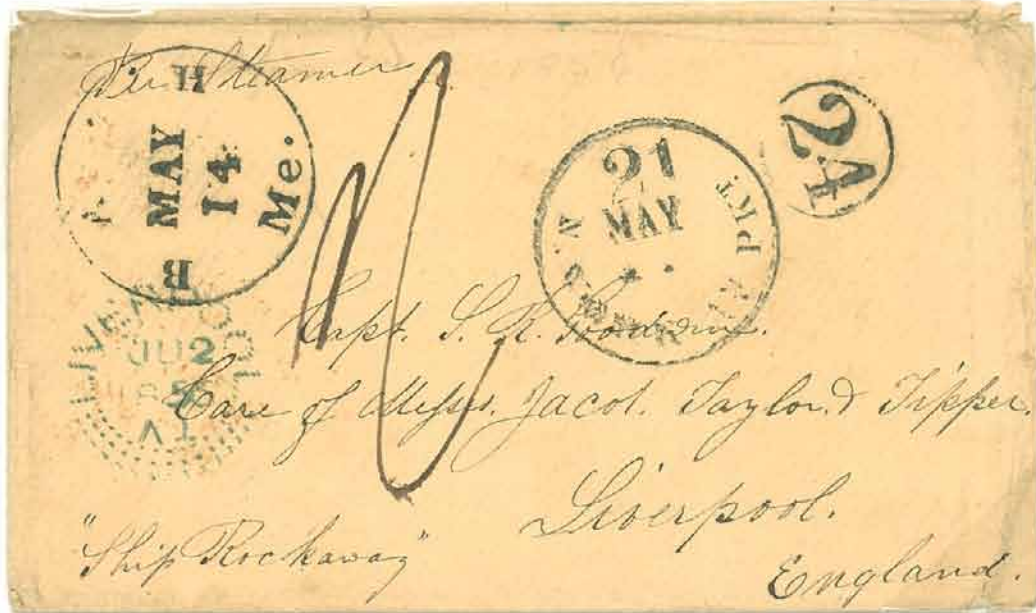 Per Steamer
B H Me.
MAY
14
21
MAY
N. PKT
24
LIVERPOOL
JU 2
A I
Capt. S. R.
Care of Messrs. Jacot. Taylor & Tipper
Liverpool.
England.
"Ship Rockaway"